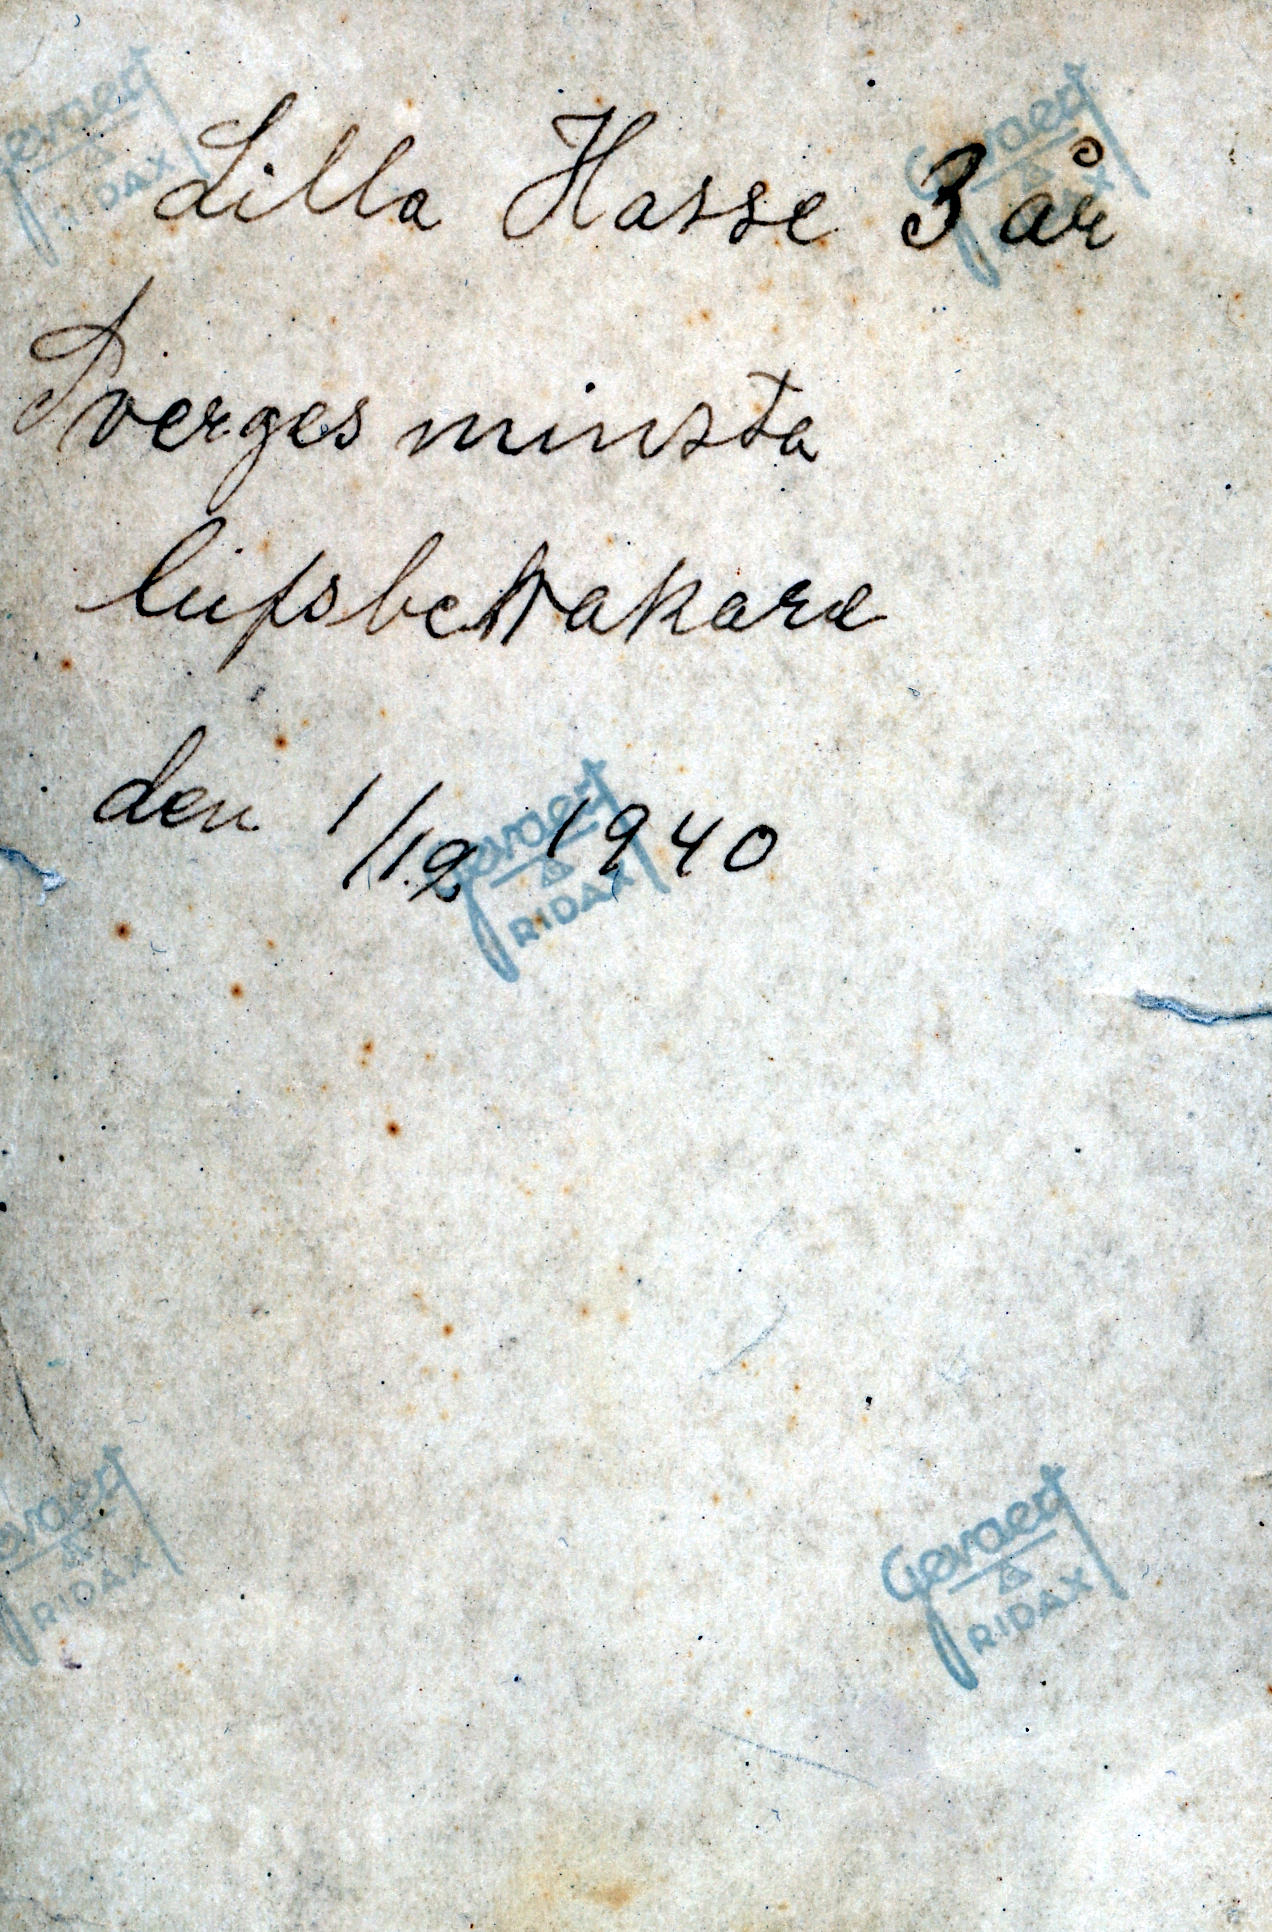 Gevaert
RIDAX
Gevaert
RIDAX
Lilla Hasse 3 år
Sverges minsta
lufsbevakare
den 1/12 1940
Gevaert
RIDAX
Gevaert
RIDAX
Gevaert
RIDAX